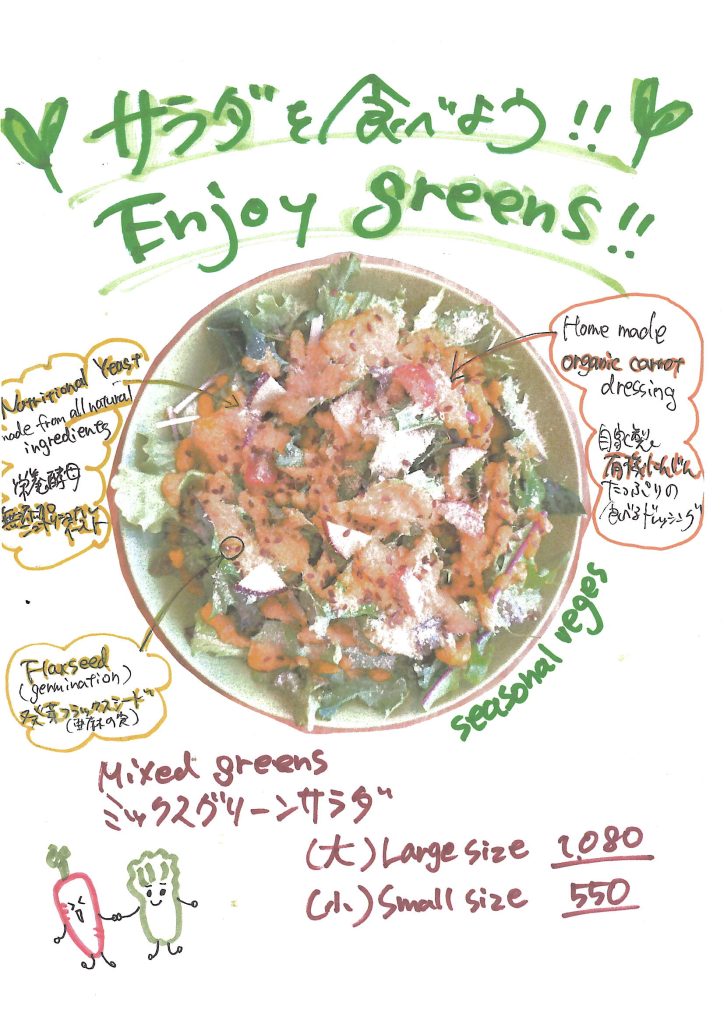 サラダを食べよう!!
Enjoy greens!!
Nutritional Yeast
made from all natural
ingredients
栄養酵母
Home made
organic carrot
dressing
自家製
有機にんじん
たっぷりの
食べるドレッシング
Flaxseed
(germination)
発芽フラックスシード
(亜麻の実)
seasonal veges
Mixed greens
ミックスグリーンサラダ
(大) Large size 1,080
(小) Small size 550